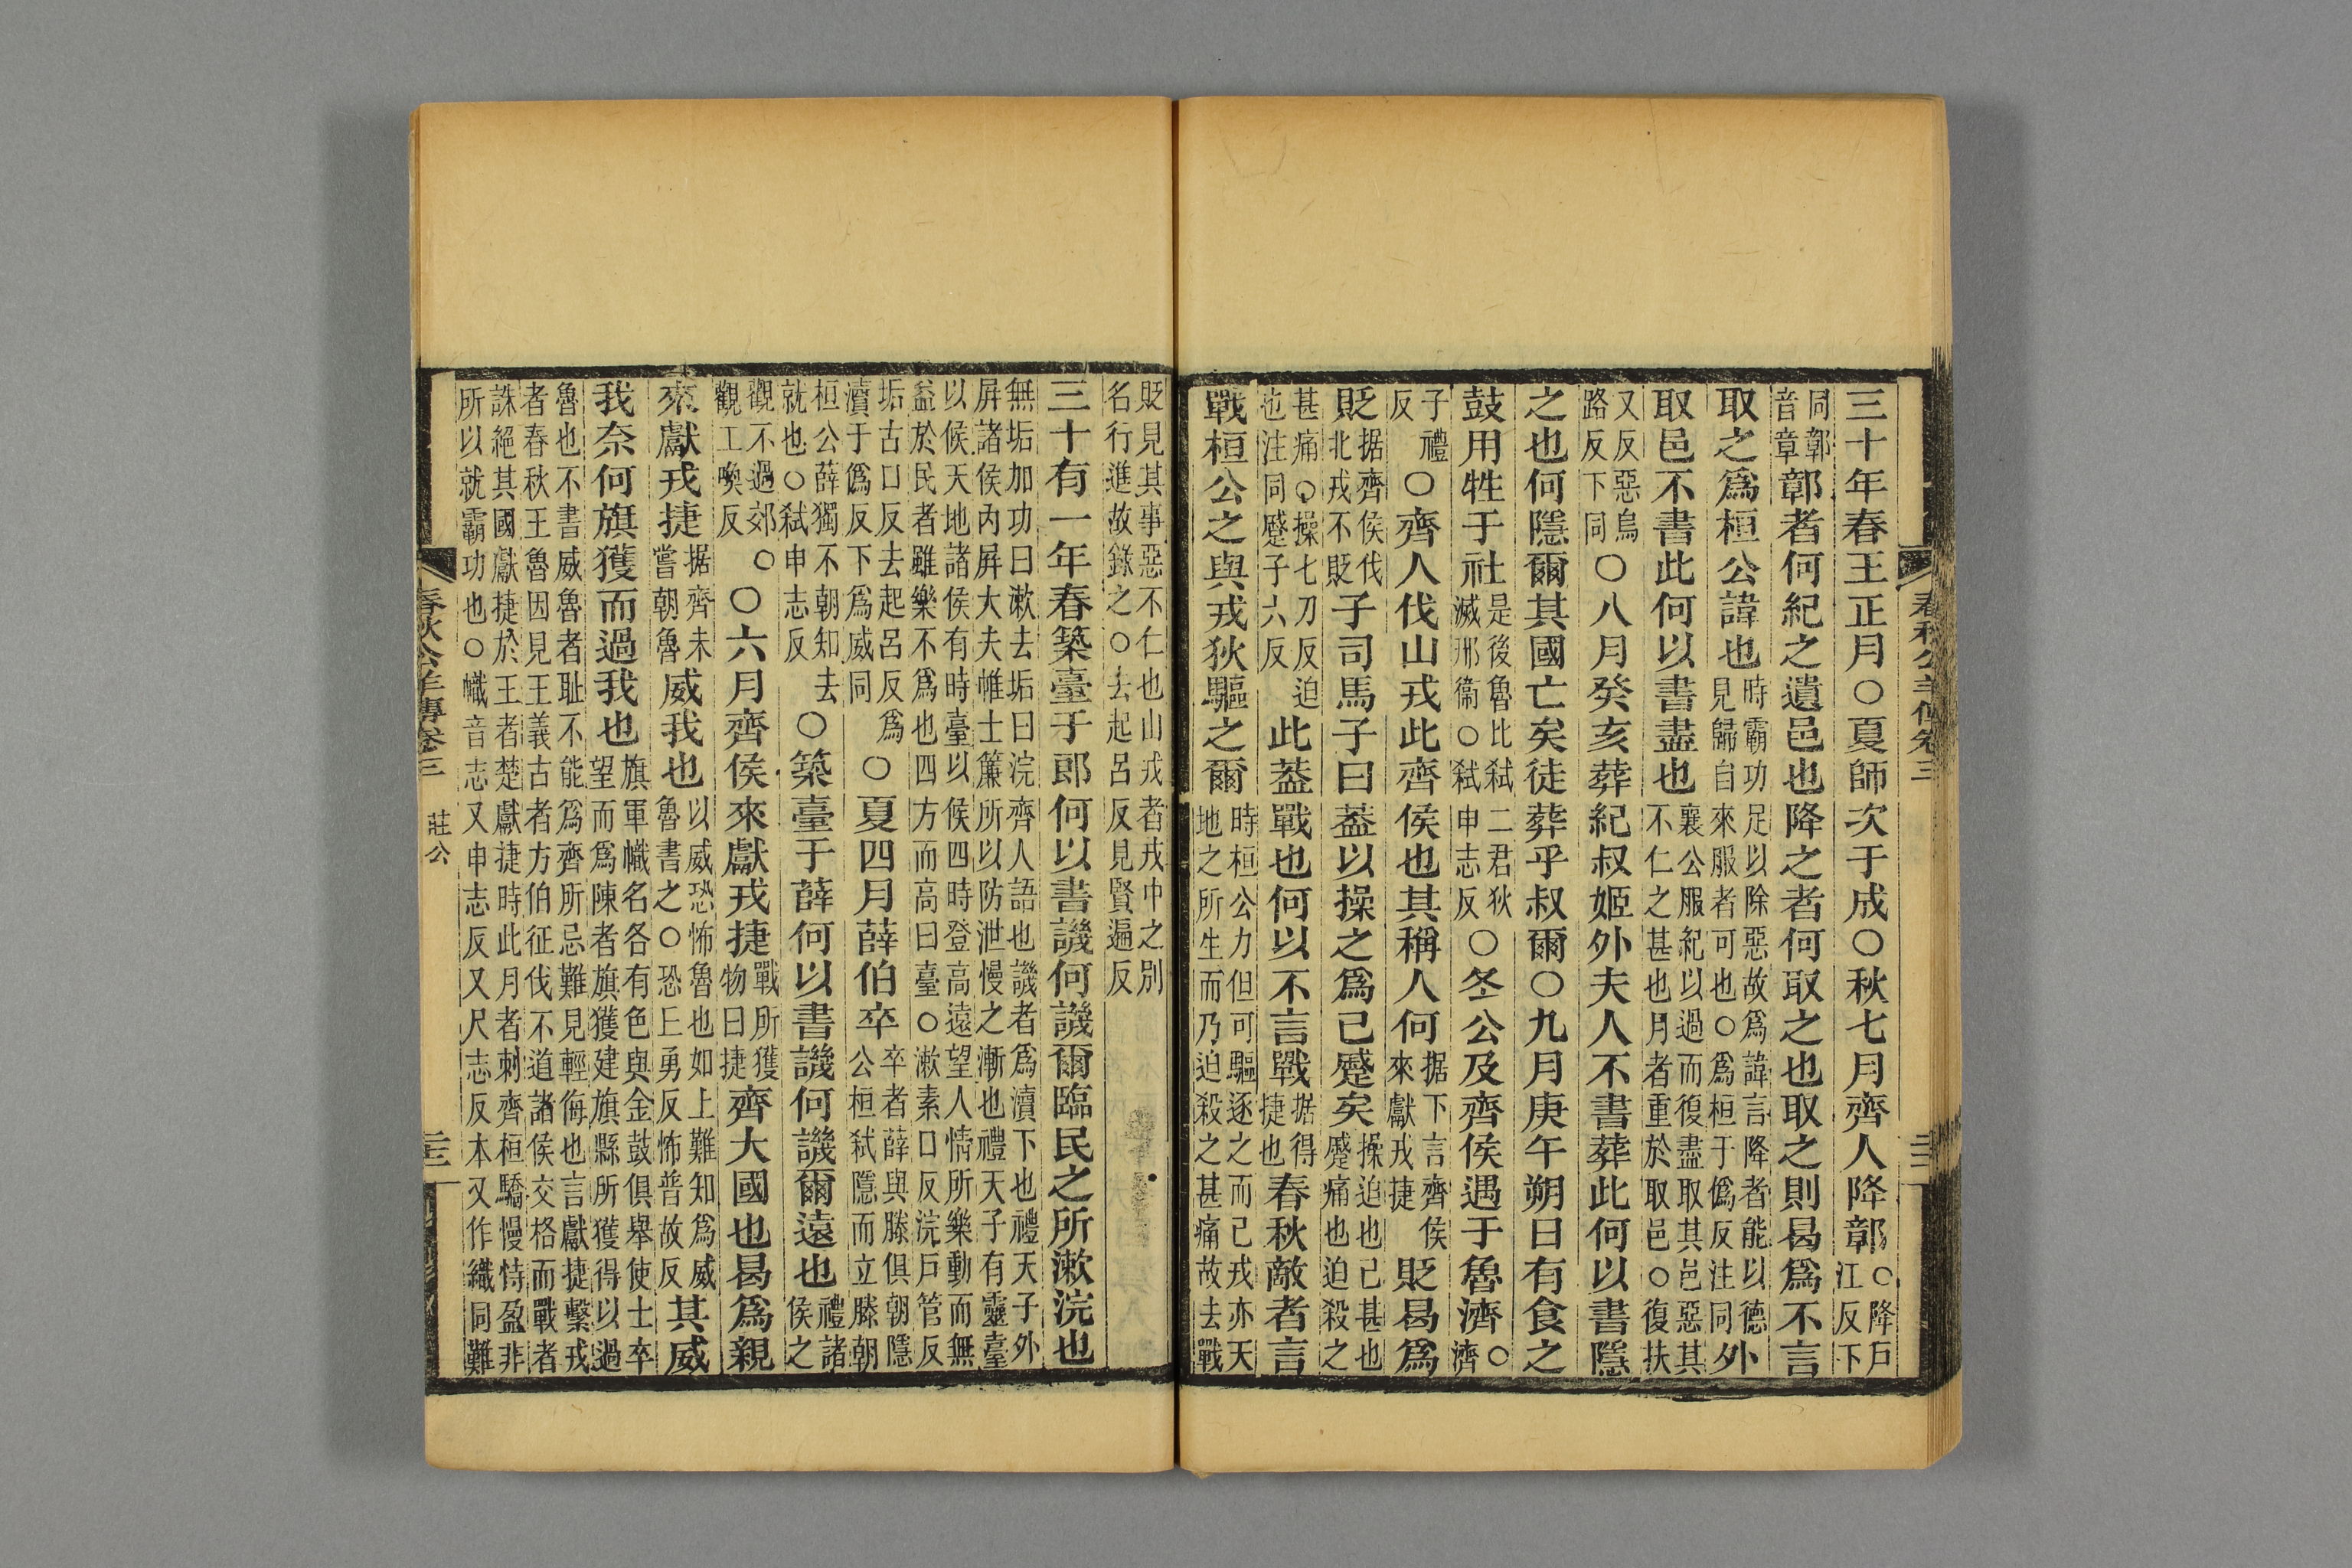 春秋公羊傳卷三
三十年春王正月○夏師次于成○秋七月齊人降鄣○降戶江反下
同鄣音章鄣者何紀之遺邑也降之者何取之也取之則曷爲不言
取之爲桓公諱也時霸功足以除惡故爲諱言降者能以德見歸自來服者可也○爲桓于僞反注同外
取邑不書此何以書盡也襄公服紀以過而復盡取其邑惡其不仁之甚也月者重於取邑○復扶
又反惡烏路反下同○八月癸亥葬紀叔姬外夫人不書葬此何以書隱
之也何隱爾其國亡矣徒葬乎叔爾○九月庚午朔日有食之
鼓用牲于社是後魯比弒二君狄滅邢衞○弒申志反○冬公及齊侯遇于魯濟○濟
子禮反○齊人伐山戎此齊侯也其稱人何据下言齊侯來獻戎捷貶曷爲
貶据齊侯伐北戎不貶子司馬子曰蓋以操之爲已蹙矣操迫也已甚也蹙痛也迫殺之
甚痛○操七刀反迫也注同蹙子六反此蓋戰也何以不言戰据得捷也春秋敵者言
戰桓公之與戎狄驅之爾時桓公力但可驅逐之而已戎亦天地之所生而乃迫殺之甚痛故去戰
貶見其事惡不仁也山戎者戎中之別名行進故錄之○去起呂反見賢遍反
三十有一年春築臺于郎何以書譏何譏爾臨民之所漱浣也
無垢加功曰漱去垢曰浣齊人語也譏者爲瀆下也禮天子外屏諸侯內屏大夫帷士簾所以防泄慢之漸也禮天子有靈臺
以候天地諸侯有時臺以候四時登高遠望人情所樂動而無益於民者雖樂不爲也四方而高曰臺○漱素口反浣戶管反
垢古口反去起呂反爲瀆于僞反下爲威同○夏四月薛伯卒卒者薛與滕俱朝隱公桓弒隱而立滕朝
桓公薛獨不朝知去就也○弒申志反○築臺于薛何以書譏何譏爾遠也禮諸侯之
觀不過郊○觀工喚反○六月齊侯來獻戎捷戰所獲物曰捷齊大國也曷爲親
來獻戎捷据齊未嘗朝魯威我也以威恐怖魯也如上難知爲威魯書之○恐丘勇反怖普故反其威
我奈何旗獲而過我也旗軍幟名各有色與金鼓俱舉使士卒望而爲陳者旗獲建旗縣所獲得以過
魯也不書威魯者恥不能爲齊所忌難見輕侮也言獻捷繫戎者春秋王魯因見王義古者方伯征伐不道諸侯交格而戰者
誅絕其國獻捷於王者楚獻捷時此月者刺齊桓驕慢恃盈非所以就霸功也○幟音志又申志反又尺志反本又作織同難
春秋公羊傳卷三
莊公